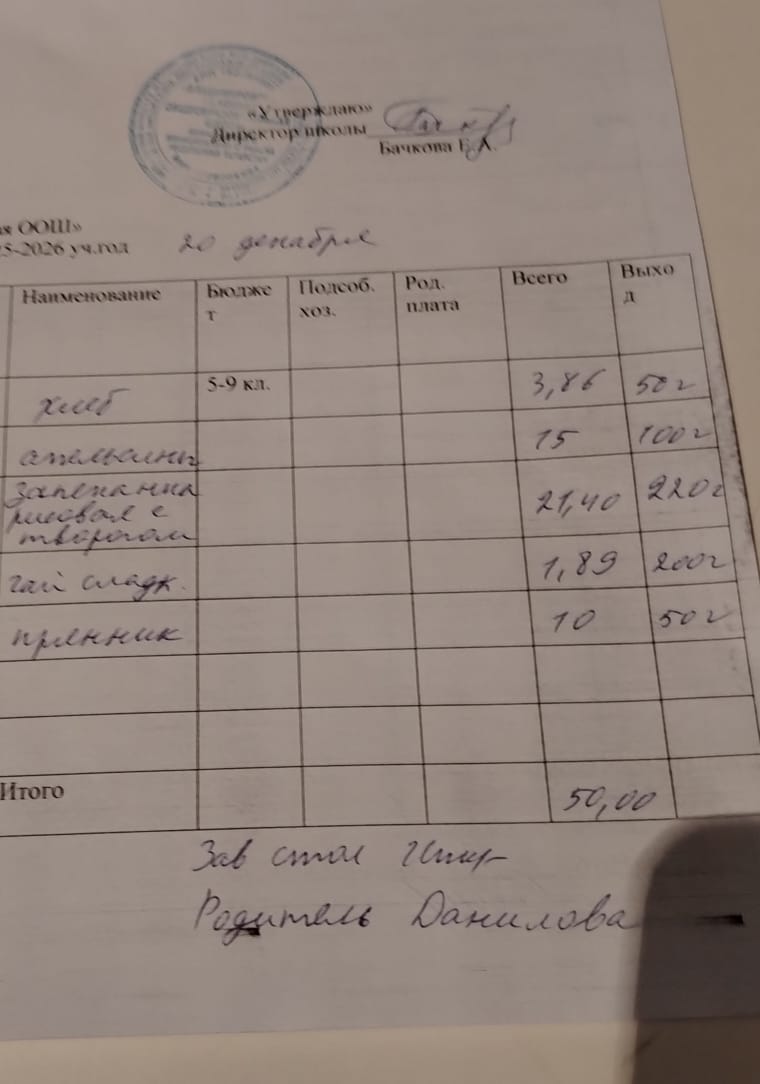 «Утверждаю»
Директор школы
Бачкова Е.А.
ая ООШ»
5-2026 уч.год 20 декабря
Наименование Бюджет Подсоб. хоз. Род. плата Всего Выход
хлеб 5-9 кл. 3,86 50г
апельсины 15 100г
запеканка
рисовая с 21,40 220г
творогом
чай сладк. 1,89 200г
пряник 10 50г
Итого 50,00
Зав стол
Родитель Данилова